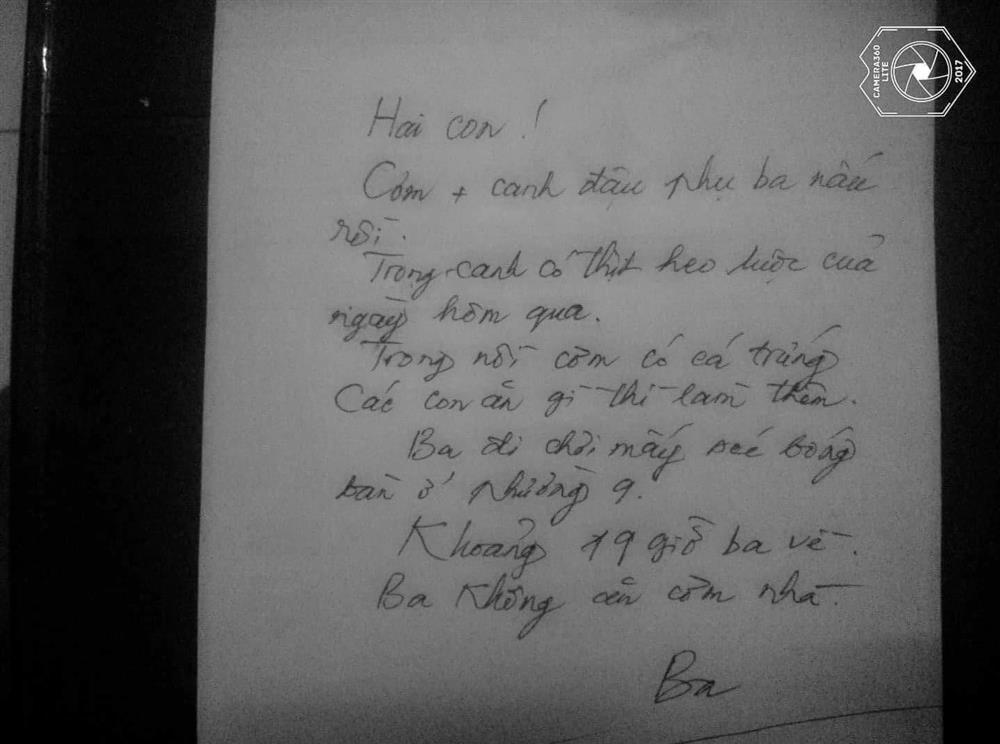 Hai con !
Cơm + canh đậu phụ ba nấu
rồi.
Trong canh có thịt heo luộc của
ngày hôm qua.
Trong nồi cơm có cá trứng
Các con ăn gì thì làm thêm.
Ba đi chơi mấy bóng
bàn ở phường 9.
Khoảng 19 giờ ba về.
Ba không ăn cơm nhà.
Ba
CAMERA360
LITE
2017